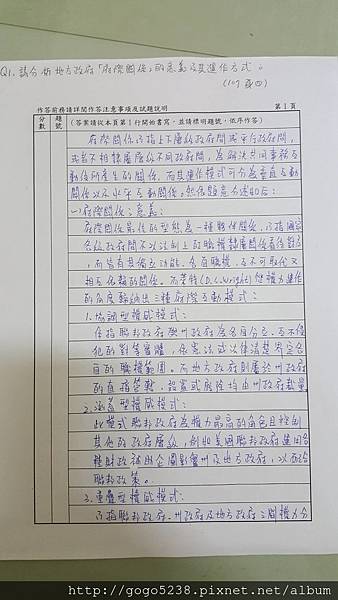 Q1. 請分析地方政府「府際關係」的意義及其運作方式。
(107 身四)
作答前務請詳閱作答注意事項及試題說明
第1頁
分數
題號
(答案請從本頁第1行開始書寫,並請標明題號,依序作答)
府際關係乃指上下層級政府間或平行政府間,
或者不相隸屬層級不同政府間,為解決共同事務互
動後所產生的關係,而其運作模式可分為垂直互動
關係以及水平互動關係,茲依題意分述如后:
(一)府際關係之意義:
府際關係最佳的型態為一種夥伴關係,乃指國家
各級政府間不以法制上的職權隸屬關係看待對方
,而皆有其獨立功能、各自職權、互不可取代又
相互依賴的關係。而萊特(D.S.Wright)從權力運作
的角度歸納出三種府際互動模式:
1.協調型權威模式:
係指聯邦政府與州政府為各自分立、互不侵
犯的對等實體,在憲法或法律清楚界定各
自的職權範圍。而地方政府則屬於州政府
的直接管轄,設置或廢除均由州政府裁量
2.涵蓋型權威模式:
此模式聯邦政府為權力最高的角色且控制
其他的政府層級,例如美國聯邦政府運用各
種財政補助企圖影響州及地方政府,以配合
聯邦政策。
3.重疊型權威模式:
乃指聯邦政府、州政府及地方政府三間權力分
http://gogo5238.pixnet.net/album